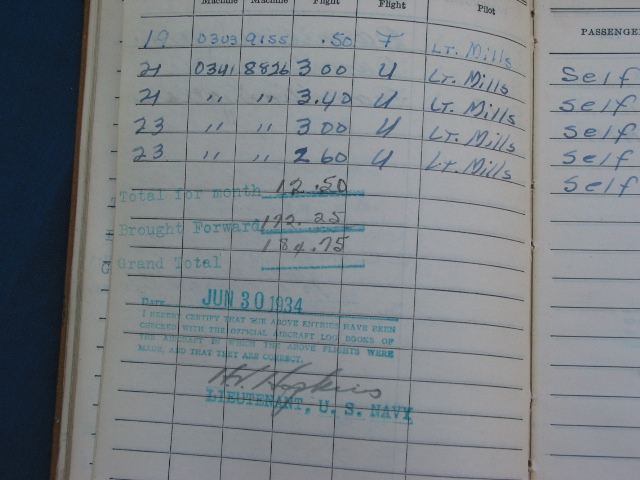 Machine Machine Flight Flight Pilot PASSENGE
19 0303 9155 .50 F Lt. Mills
21 0341 8826 3 00 U Lt. Mills Self
21 " " 3.40 U Lt. Mills Self
23 " " 3 00 U Lt. Mills Self
23 " " 2 60 U Lt. Mills Self
Self
Total for month 12.50
Brought Forward 172.25
Grand Total 184.75
Date JUN 30 1934
I HEREBY CERTIFY THAT THE ABOVE ENTRIES HAVE BEEN
CHECKED WITH THE OFFICIAL AIRCRAFT LOG BOOKS OF
THE AIRCRAFT IN WHICH THE ABOVE FLIGHTS WERE
MADE, AND THAT THEY ARE CORRECT.
Hopkins
LIEUTENANT, U. S. NAVY